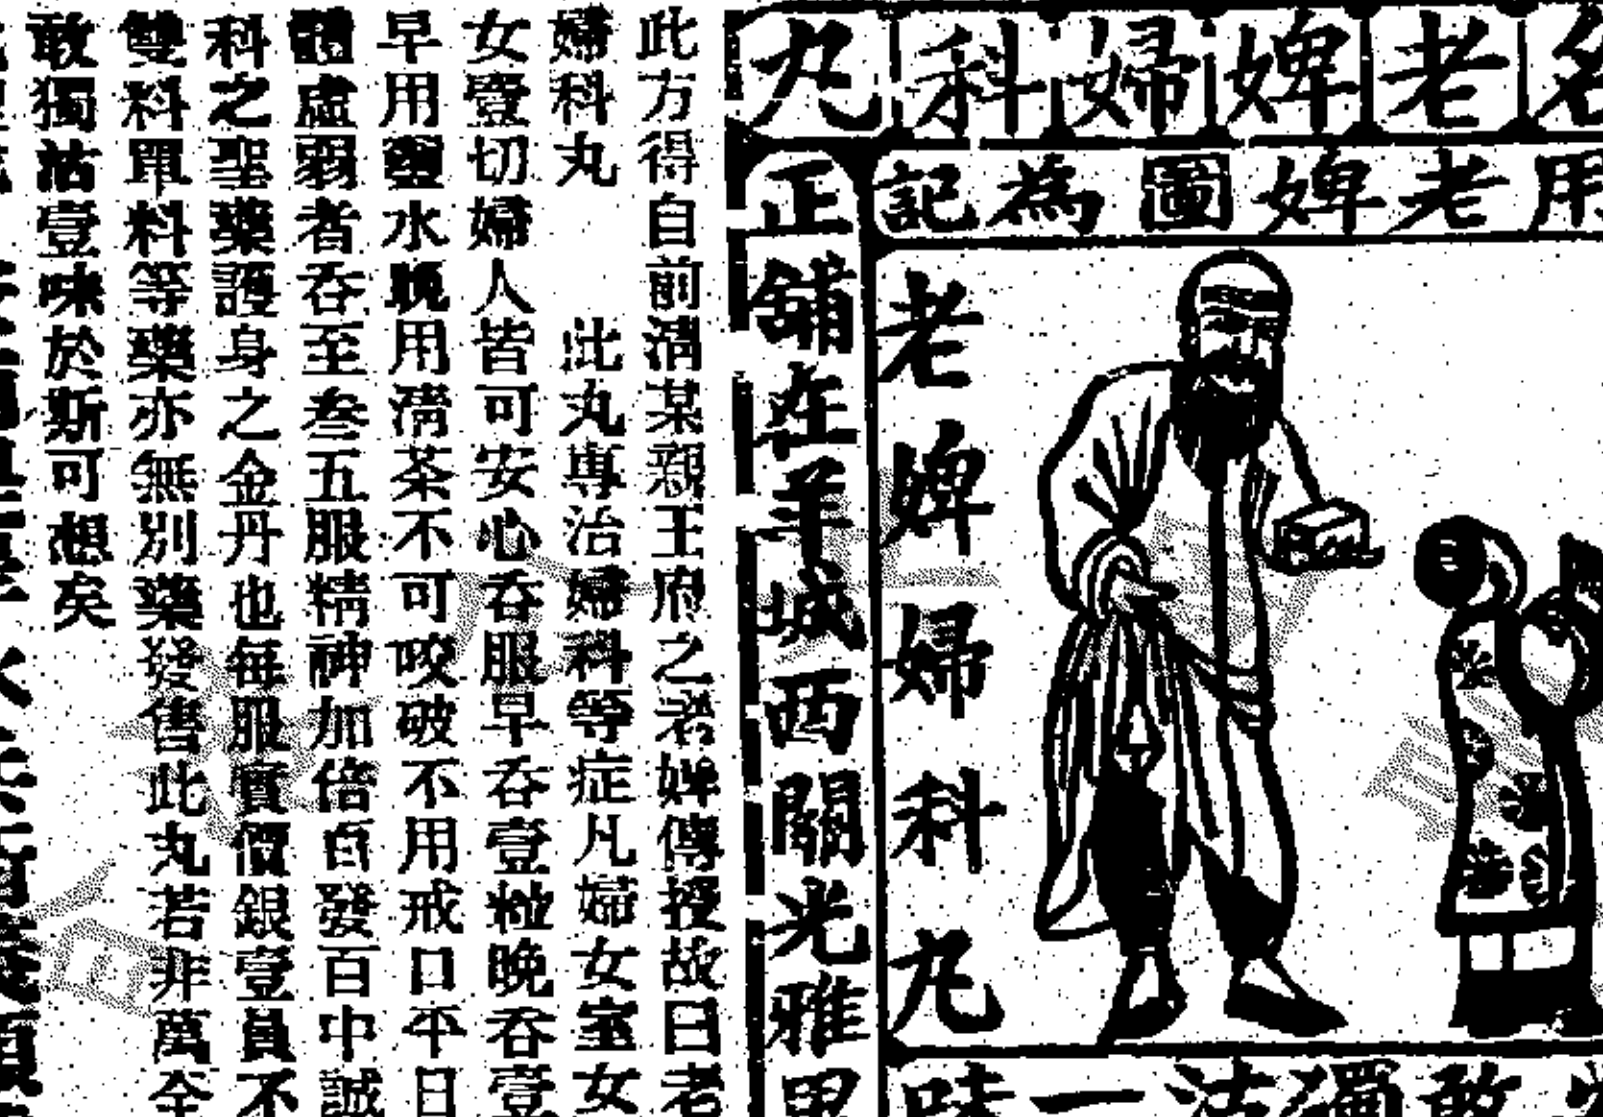 老婢婦科丸
用老婢圖為記
老婢婦科丸
敢獨沽一味
正舖在羊城西關光雅里
此方得自前清某親王府之老婢傳授故曰老
婦科丸 此丸專治婦科等症凡婦女室女
女壹切婦人皆可安心吞服早吞壹粒晚吞壹
早用鹽水晚用清茶不可咬破不用戒口平日
體虛弱者吞至叁五服精神加倍百發百中誠
科之聖藥護身之金丹也每服實價銀壹員不
雙料單料等藥亦無別藥發售此丸若非萬全
敢獨沽壹味於斯可想矣